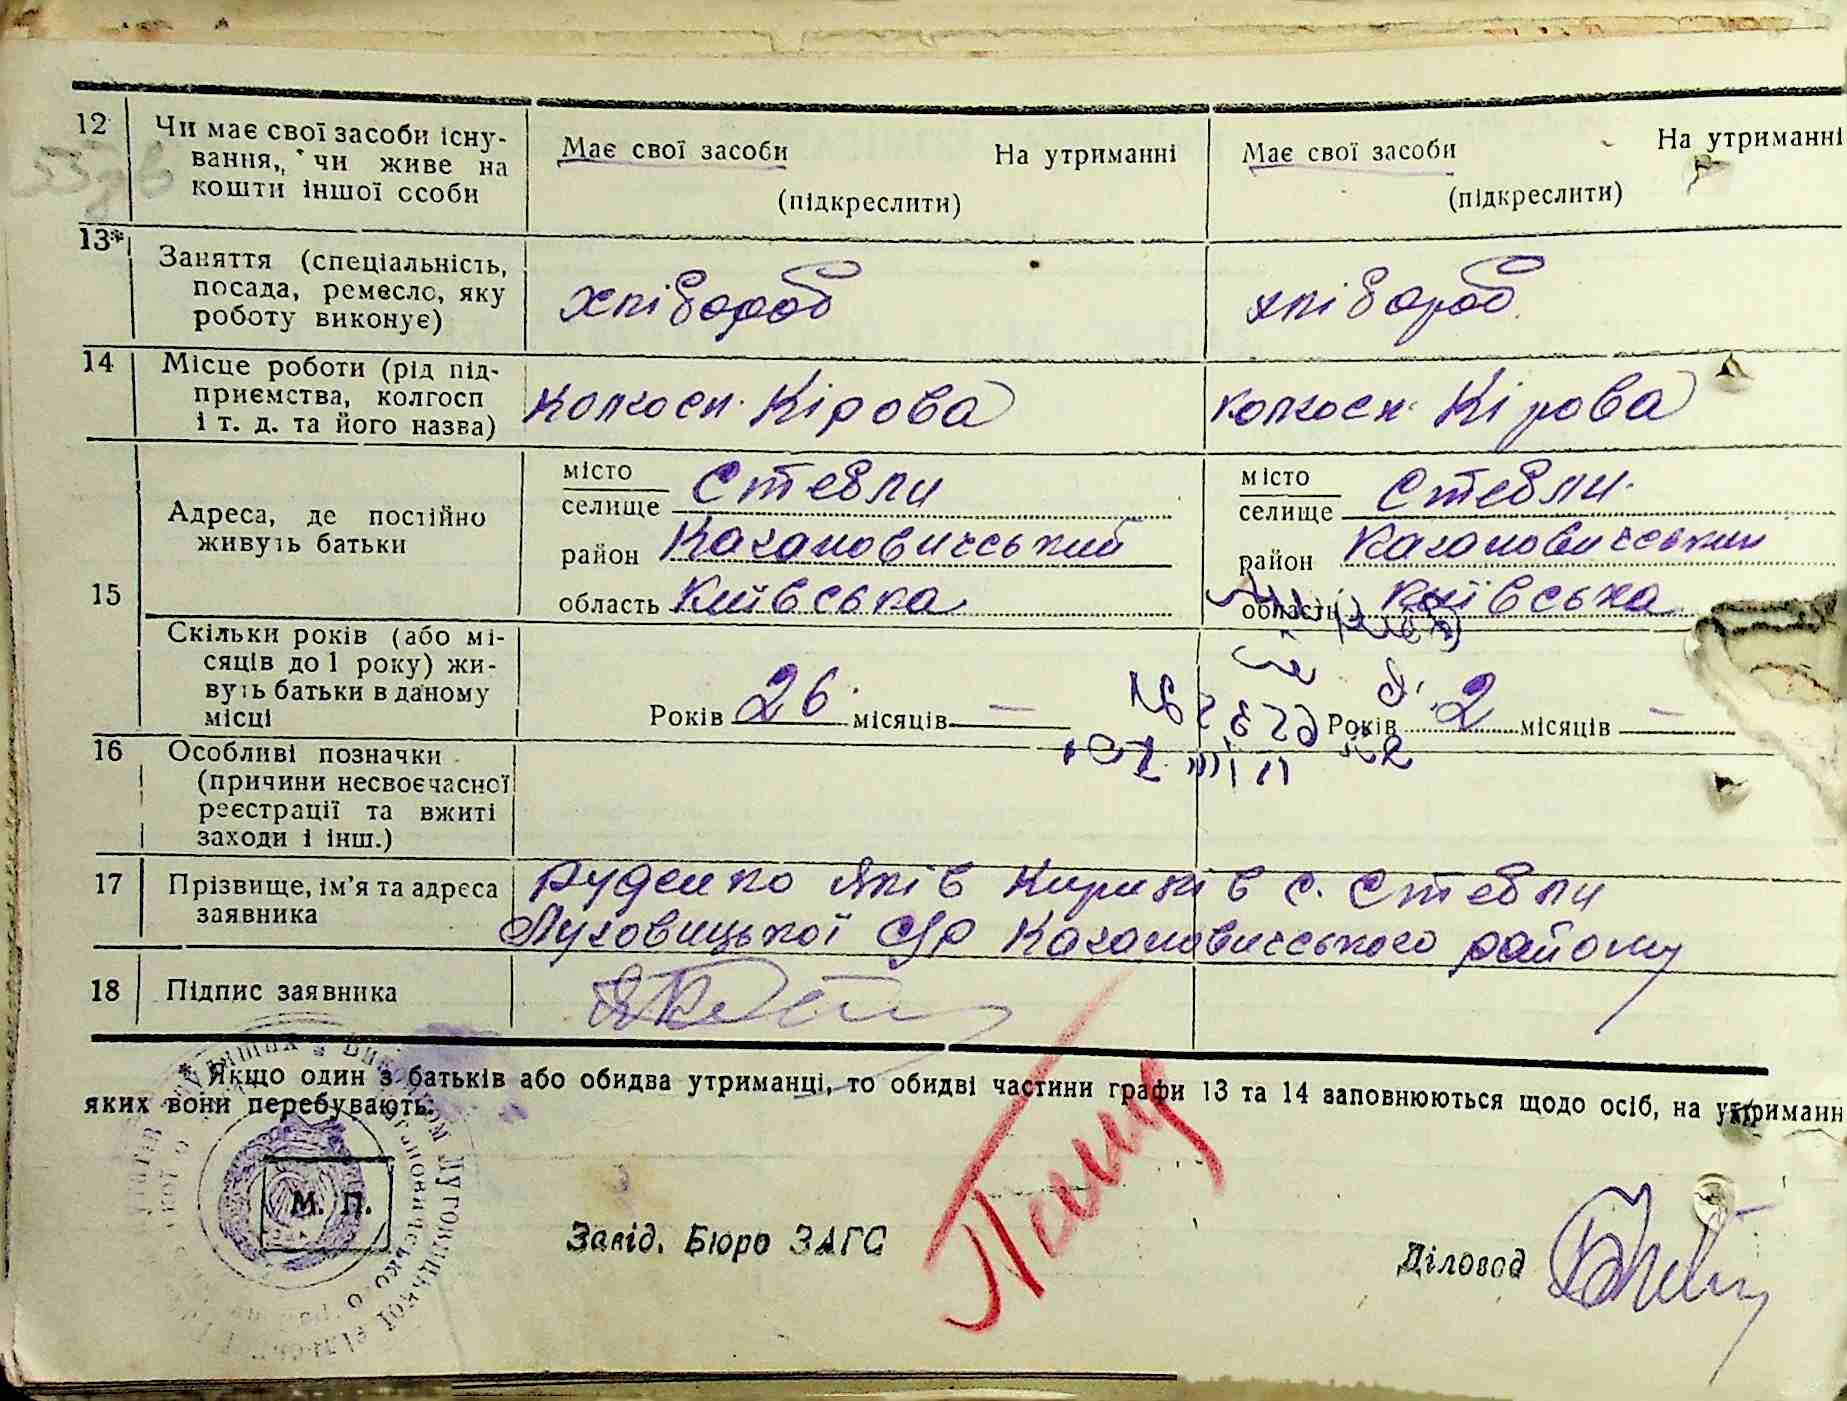 12 Чи має свої засоби існу-
вання, чи живе на
кошти іншої особи
Має свої засоби На утриманні
(підкреслити)
Має свої засоби На утриманні
(підкреслити)
13* Заняття (спеціальність,
посада, ремесло, яку
роботу виконує)
хлібороб
хлібороб
14 Місце роботи (рід під-
приємства, колгосп
і т. д. та його назва)
колхосп. Кірова
колхосп. Кірова
15 Адреса, де постійно
живуть батьки
місто
селище Стебли
район Кагановичський
область Київська
місто
селище Стебли
район Кагановичський
область Київська
Скільки років (або мі-
сяців до 1 року) жи-
вуть батьки в даному
місці
Років 26 місяців —
Років 2 місяців —
16 Особливі позначки
(причини несвоєчасної
реєстрації та вжиті
заходи і інш.)
17 Прізвище, ім'я та адреса
заявника
Руденко Яків Кирилів с. Стебли
Луговицької с/р Кагановичського району
18 Підпис заявника
* Якщо один з батьків або обидва утриманці, то обидві частини графи 13 та 14 заповнюються щодо осіб, на утриманн
яких вони перебувають.
М. П.
Завід. Бюро ЗАГС
Діловод